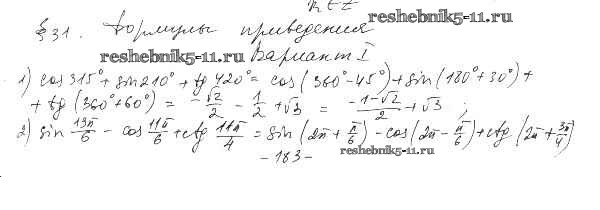 k∈Z
§31. Формулы приведения
reshebnik5-11.ru
reshebnik5-11.ru Вариант I
1) cos 315° + sin 210° + tg 420° = cos(360° - 45°) + sin(180° + 30°) +
+ tg(360° + 60°) = -√2/2 - 1/2 + √3 = (-1-√2)/2 + √3 ;
2) sin 13π/6 - cos 11π/6 + ctg 11π/4 = sin(2π + π/6) - cos(2π - π/6) + ctg(2π + 3π/4)
- 183 -
reshebnik5-11.ru